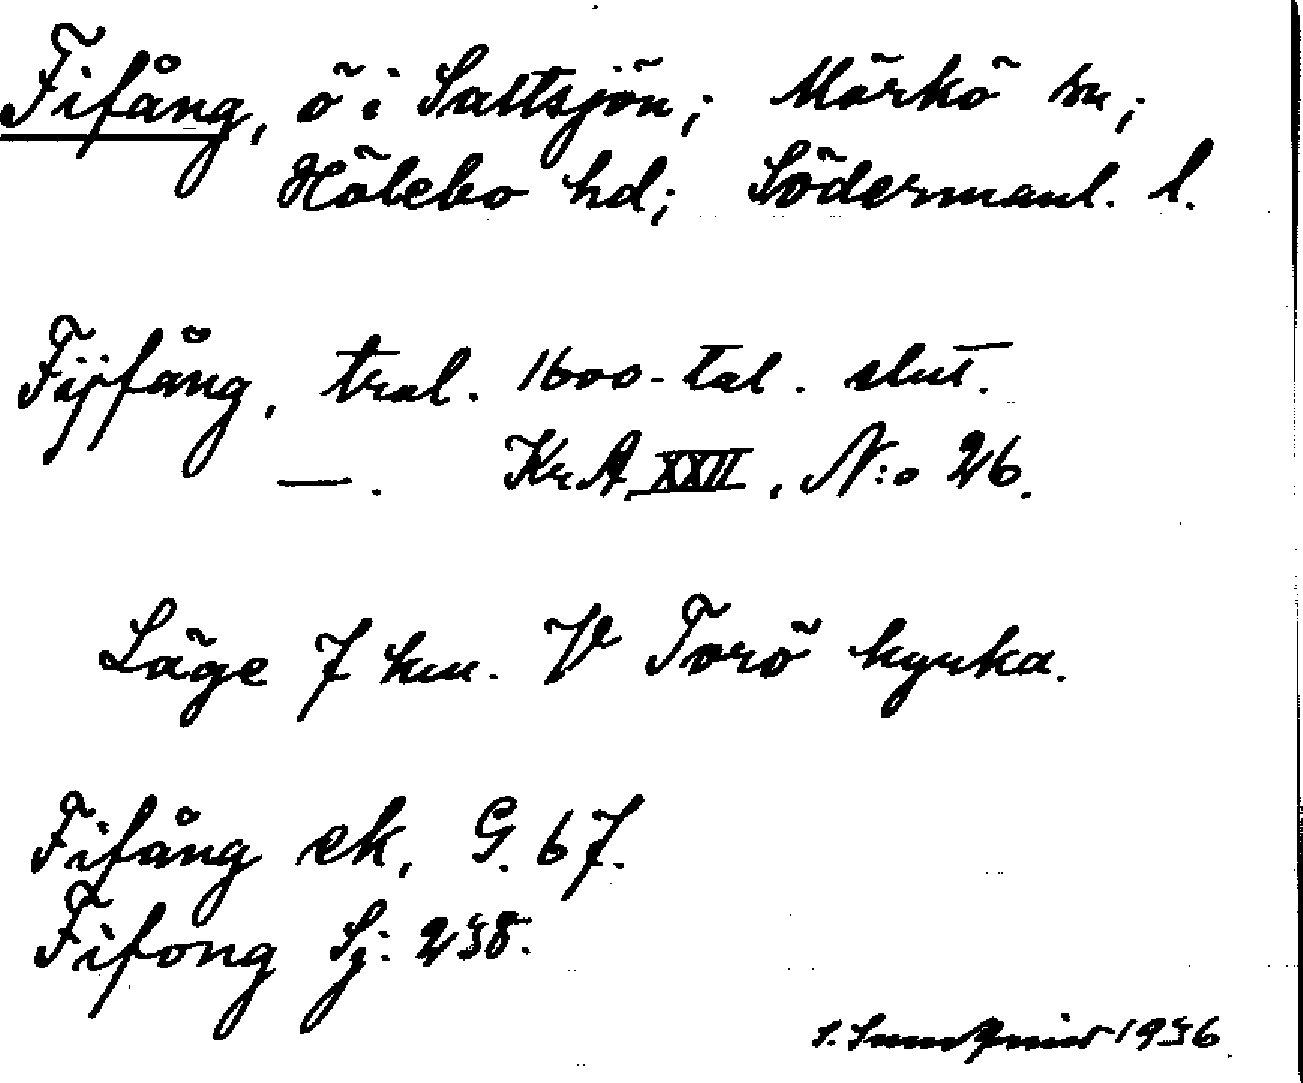 Fifång, ö i Saltsjön; Mörkö sn;
Hölebo hd; Södermanl. l.
Fijfång, tral. 1600-tal. slut.
—. Kr.A. XXII, N:o 26.
Läge 7 km. V Torö kyrka.
Fifång ek, G. 67.
Fifong Sj: 238.
1936